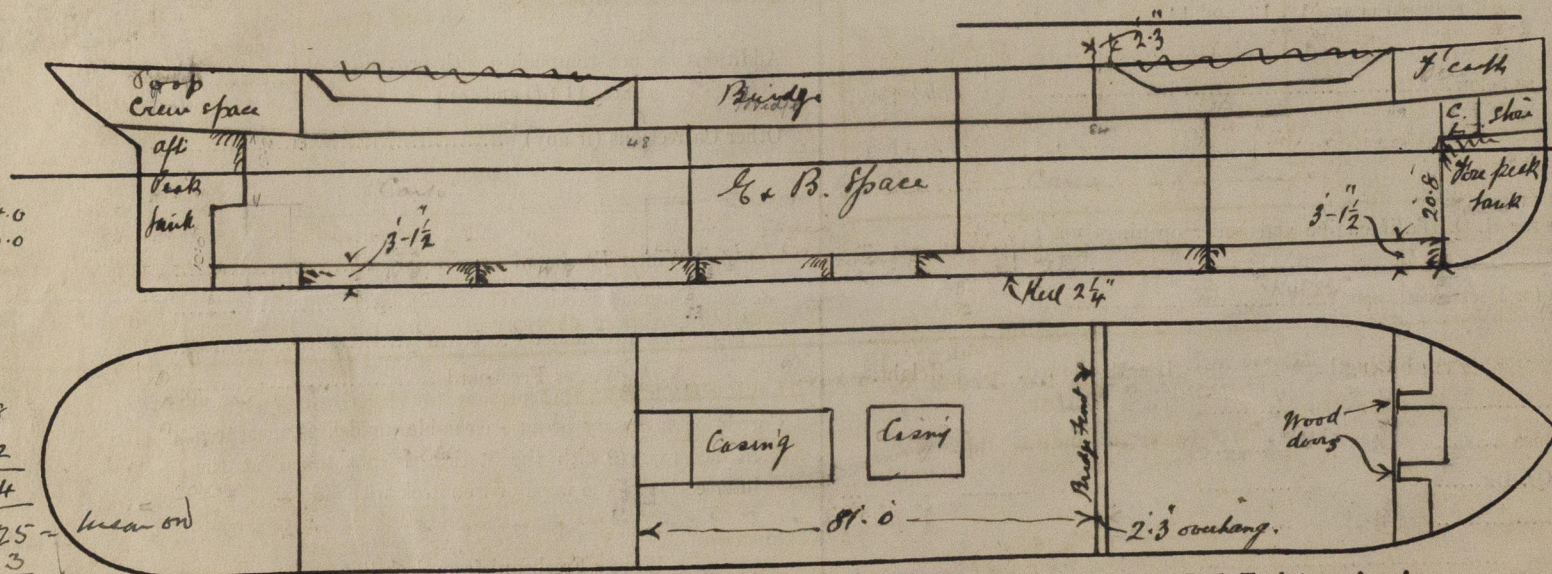 2'.3"
Poop
Crew space
Bridge
F'castle
48
84
C.
Store
aft
Peak
tank
Cargo
E & B. Space
Fore peak
tank
20.8
3'-1½"
3'-1½"
Keel 2¼"
Casing
Casing
Bridge Front
Wood
doors
81'.0
2'.3" overhang.
mean on